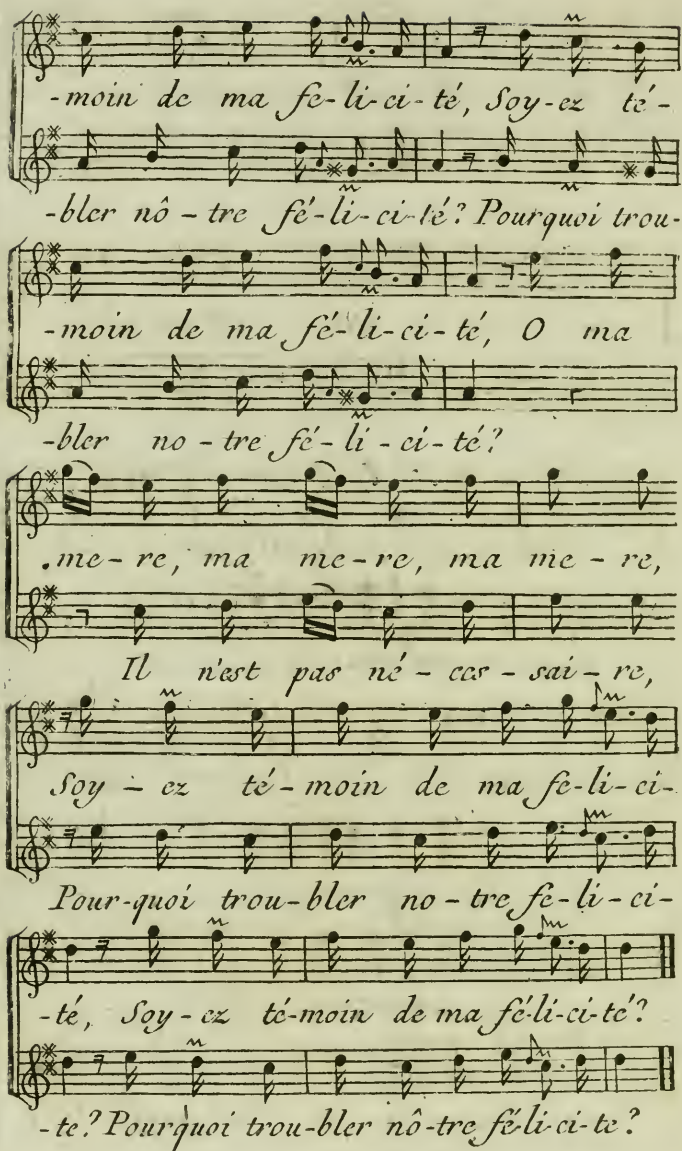 -moin de ma fe-li-ci-té, Soy-ez té-
-bler nô-tre fé-li-ci-té? Pourquoi trou-
-moin de ma fé-li-ci-té, O ma
-bler no-tre fé-li-ci-té?
me-re, ma me-re, ma me-re,
Il n'est pas né-ces-sai-re,
Soy-ez té-moin de ma fe-li-ci-
Pour-quoi trou-bler no-tre fe-li-ci-
-té, Soy-ez té-moin de ma fé-li-ci-té?
-te? Pourquoi trou-bler nô-tre fé-li-ci-te?